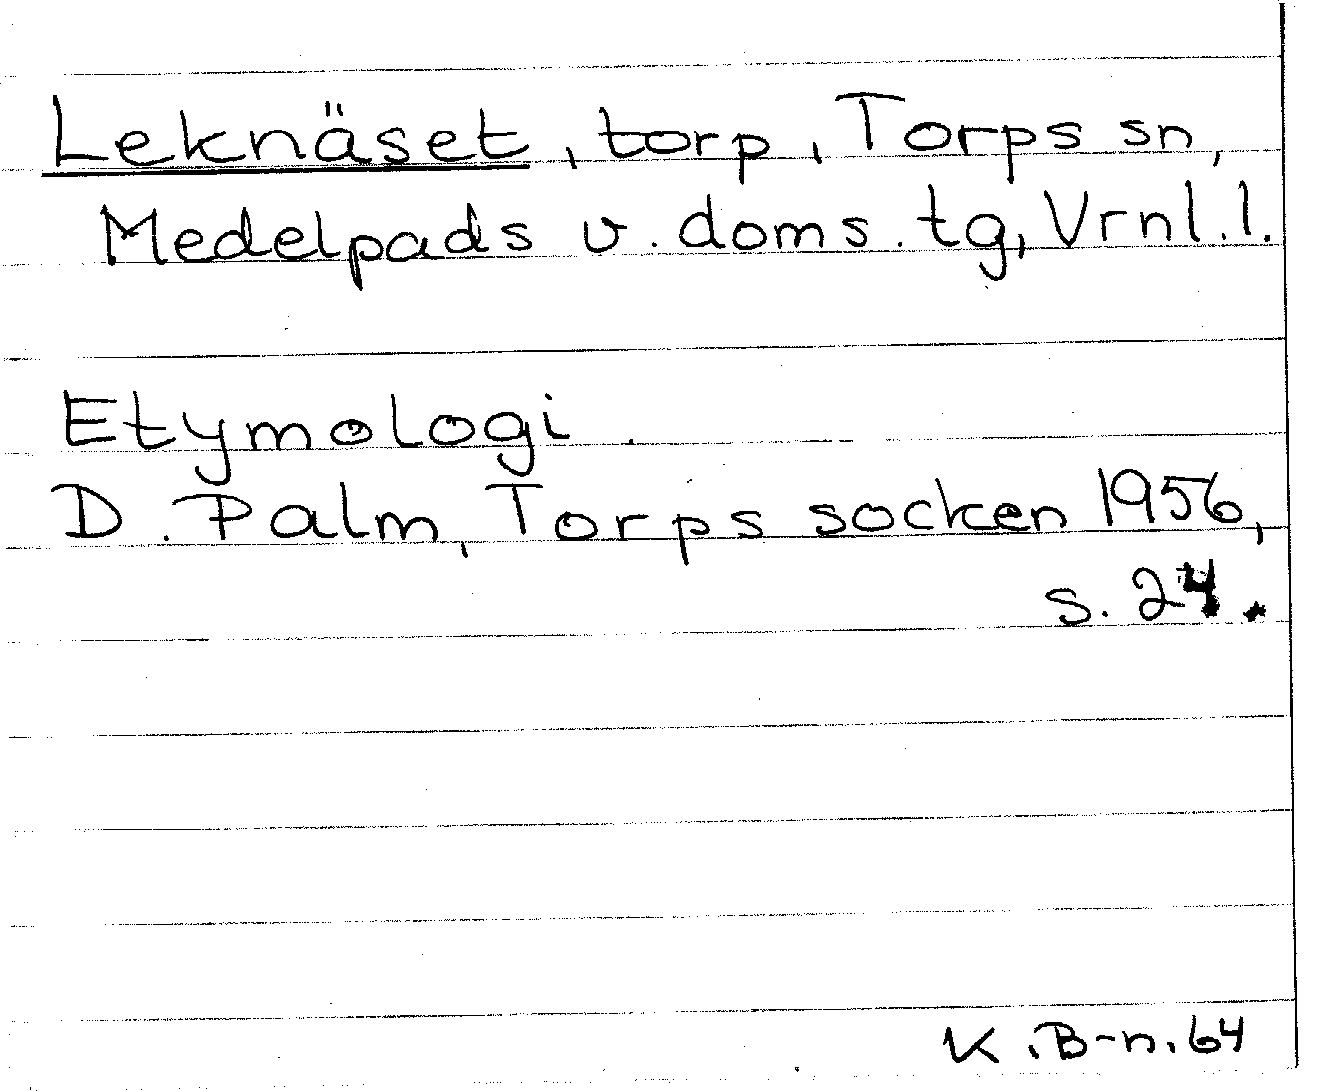 Leknäset, torp, Torps sn,
Medelpads v. doms. tg, Vrnl. l.
Etymologi.
D. Palm, Torps socken 1956,
s. 24.
K.B-n. 64